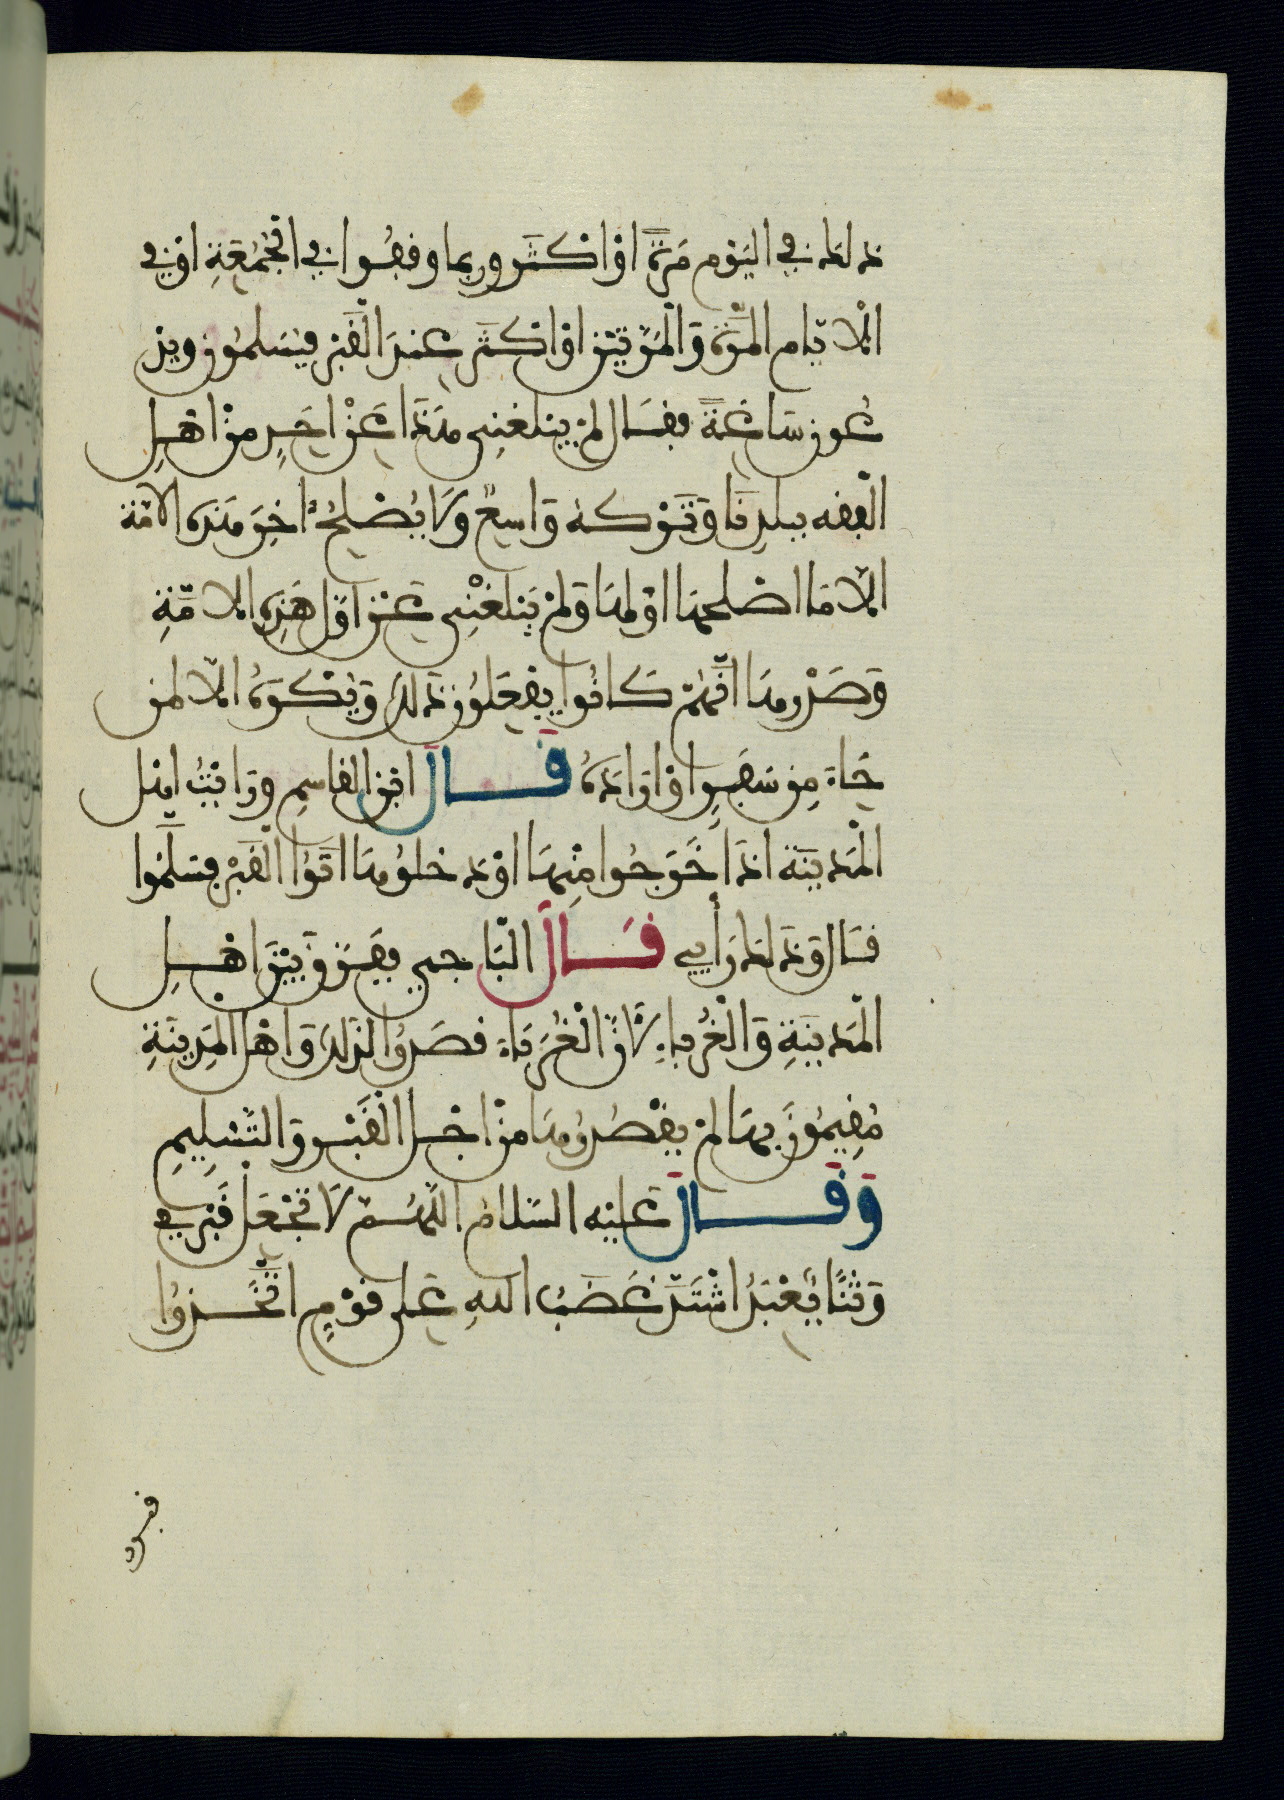 ذلك في اليوم مرة او اكثر وربما وقفوا في الجمعة او في
الايام المرة والمرتين او اكثر عند القبر فيسلمون ويد
عون ساعة فقال لم يبلغني هذا عن احد من اهل
الفقه ببلدنا وتركه واسع ولا يصلح اخر هذه الامة
الا ما اصلحها اولها ولم يبلغني عن اول هذه الامة
وصدرها انهم كانوا يفعلون ذلك ويكره الا لمن
جاء من سفر او اراده قال ابن القاسم ورايت اهل
المدينة اذا خرجوا منها او دخلوها اتوا القبر فسلموا
قال وذلك رأيي قال الباجي ففرق بين اهل
المدينة والغرباء لان الغرباء قصدوا لذلك واهل المدينة
مقيمون بها لم يقصدوها من اجل القبر والتسليم
وقال عليه السلام اللهم لا تجعل قبري
وثنا يعبد اشتد غضب الله على قوم اتخذوا
قبور